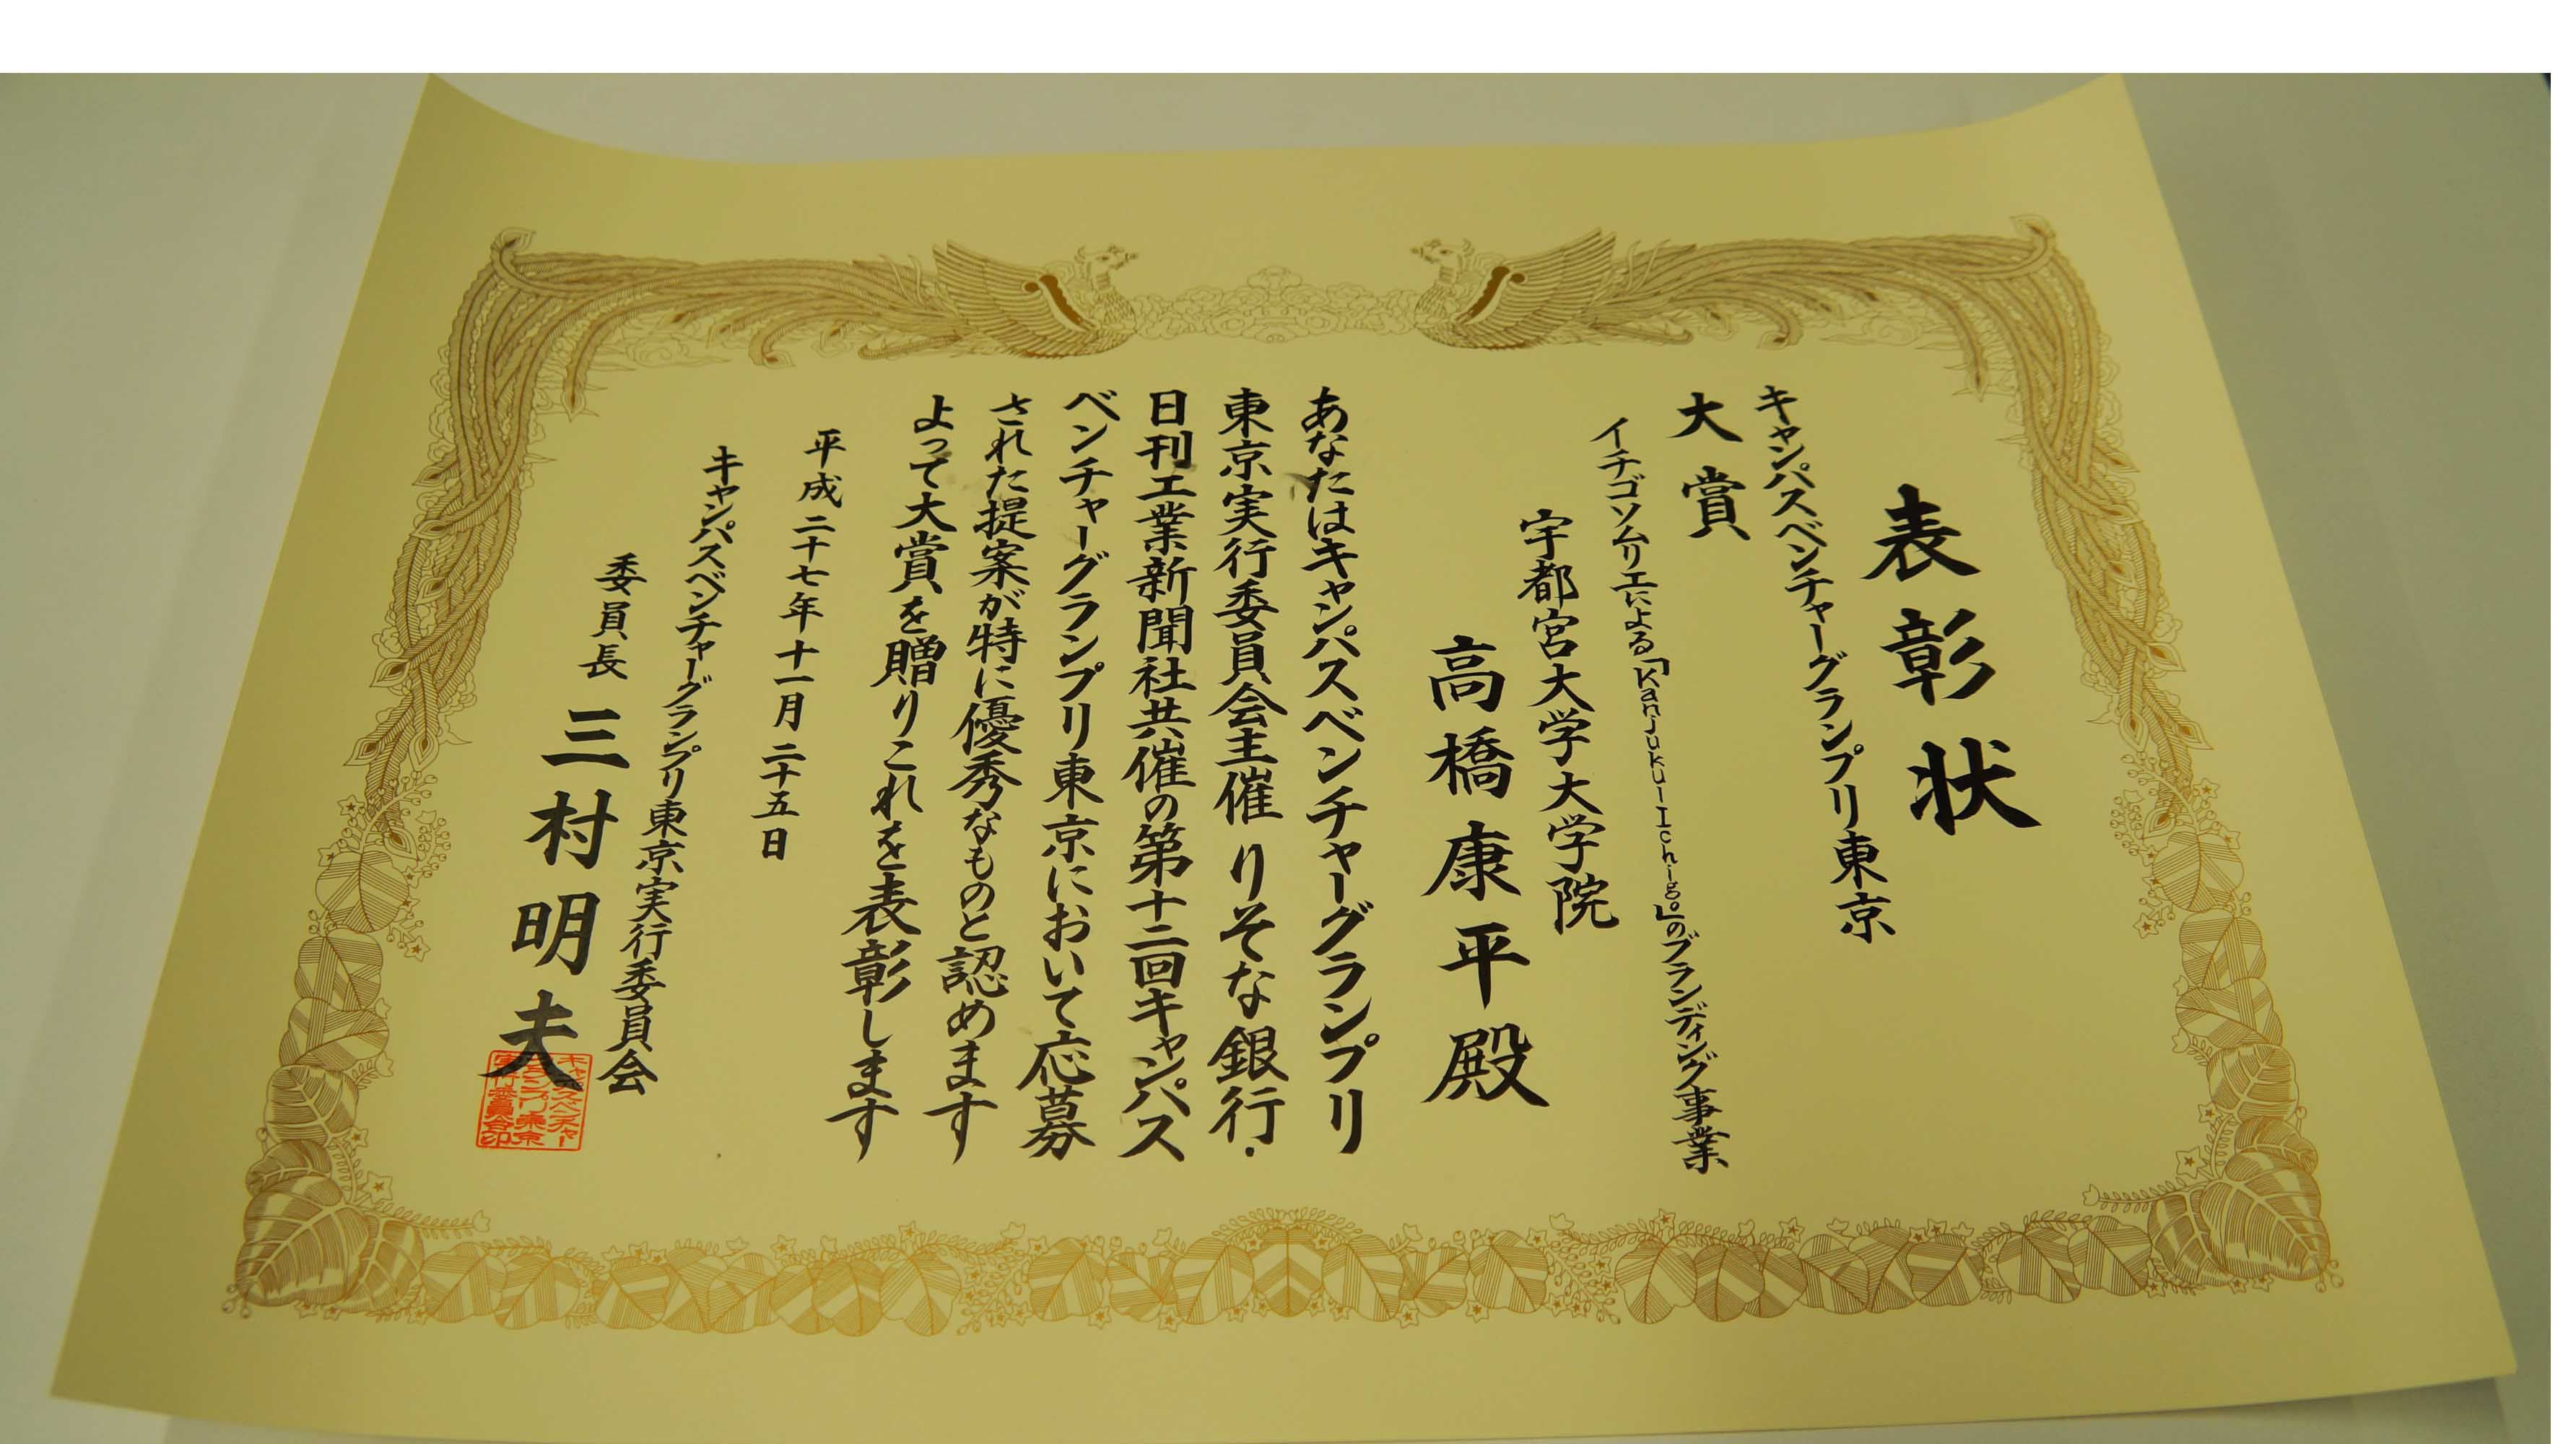 表彰状
キャンパスベンチャーグランプリ東京
大賞
イチゴソムリエによる「Kanjuku-Ichigo」のブランディング事業
宇都宮大学大学院
高橋康平殿
あなたはキャンパスベンチャーグランプリ
東京実行委員会主催 りそな銀行・
日刊工業新聞社共催の第十二回キャンパス
ベンチャーグランプリ東京において応募
された提案が特に優秀なものと認めます
よって大賞を贈りこれを表彰します
平成二十七年十一月二十五日
キャンパスベンチャーグランプリ東京実行委員会
委員長 三村明夫
キャンパスベンチャー
グランプリ東京
実行委員会印